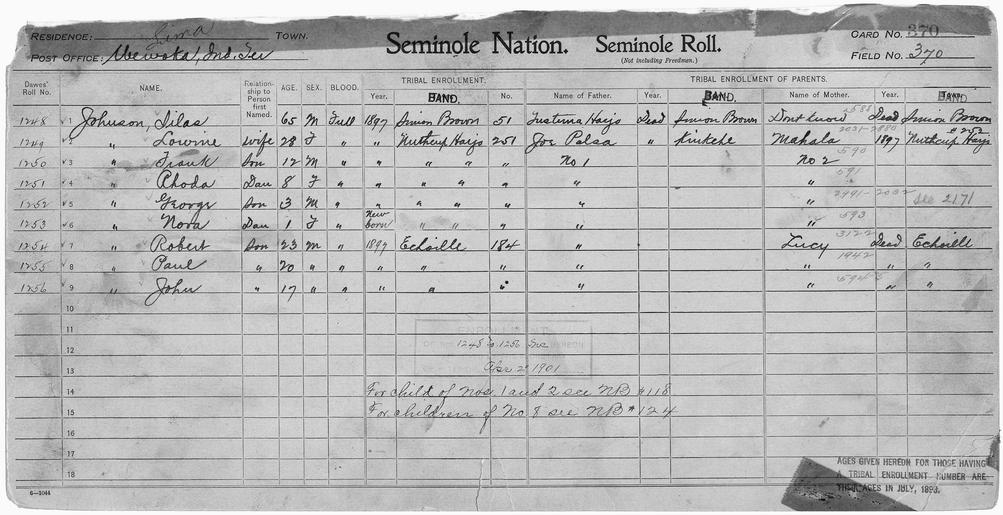 RESIDENCE: Lima TOWN. CARD NO. 370
POST OFFICE: Wewoka, Ind. Ter Seminole Nation. Seminole Roll. FIELD NO. 370
(Not including Freedmen.)
Dawes' Roll No. NAME. Relationship to Person first Named. AGE. SEX. BLOOD. TRIBAL ENROLLMENT. TRIBAL ENROLLMENT OF PARENTS.
Year. BAND. No. Name of Father. Year. BAND. Name of Mother. Year. BAND.
1248 1 Johnson, Silas 65 M Full 1897 Simon Brown 51 Fustima Harjo Dead Simon Brown Dont know 2588 Dead Simon Brown
1249 2 " Lowine wife 28 F " " Nuthcup Harjo 251 Joe Palsa " Kinkehe Mahala 1897 Nuthcup Harjo # 252
1250 3 " Frank Son 12 M " " " " " No 1 No 2 590
1251 4 " Rhoda Dau 8 F " " " " " " " 591
1252 5 " George Son 3 M " " " " " " " see 2171
1253 6 " Nora Dau 1 F " New born " " " " " 593
1254 7 " Robert Son 23 M " 1897 Echoille 184 " Lucy 3122 Dead Echoille
1255 8 " Paul " 20 " " " " " " " 1942 " "
1256 9 " John " 17 " " " " " " " " "
10
11
ENROLLMENT
12 1248 to 1256 Inc
13 Apr 2 1901
14 For child of Nos. 1 and 2 see NB #118
15 For children of No 8 see NB # 124
16
17
18
AGES GIVEN HEREON FOR THOSE HAVING
A TRIBAL ENROLLMENT NUMBER ARE
THEIR AGES IN JULY, 1898.
6—1044